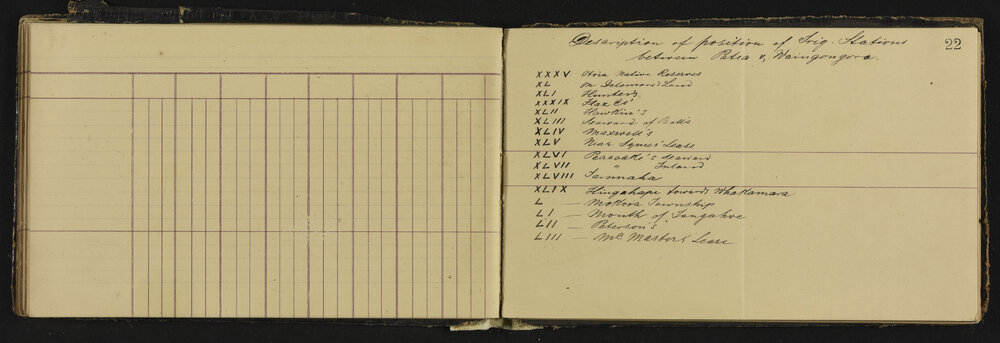 22
Description of position of Trig. Stations
between Patea & Waingongoro.
XXXV Otoia Native Reserves
XL On Delamore's Land
XLI Hunter's
XXXIX Flax Co'
XLII Hawkin's
XLIII Seaward of Ball's
XLIV Maxwell's
XLV Near Symes' Lease
XLVI Peacocke's seaward
XLVII " Inland
XLVIII
XLIX Hingahape towards Whakamara
L — Mokoia Township
LI — Mouth of Tangahoe
LII — Peterson's
LIII — McMaster's Lease